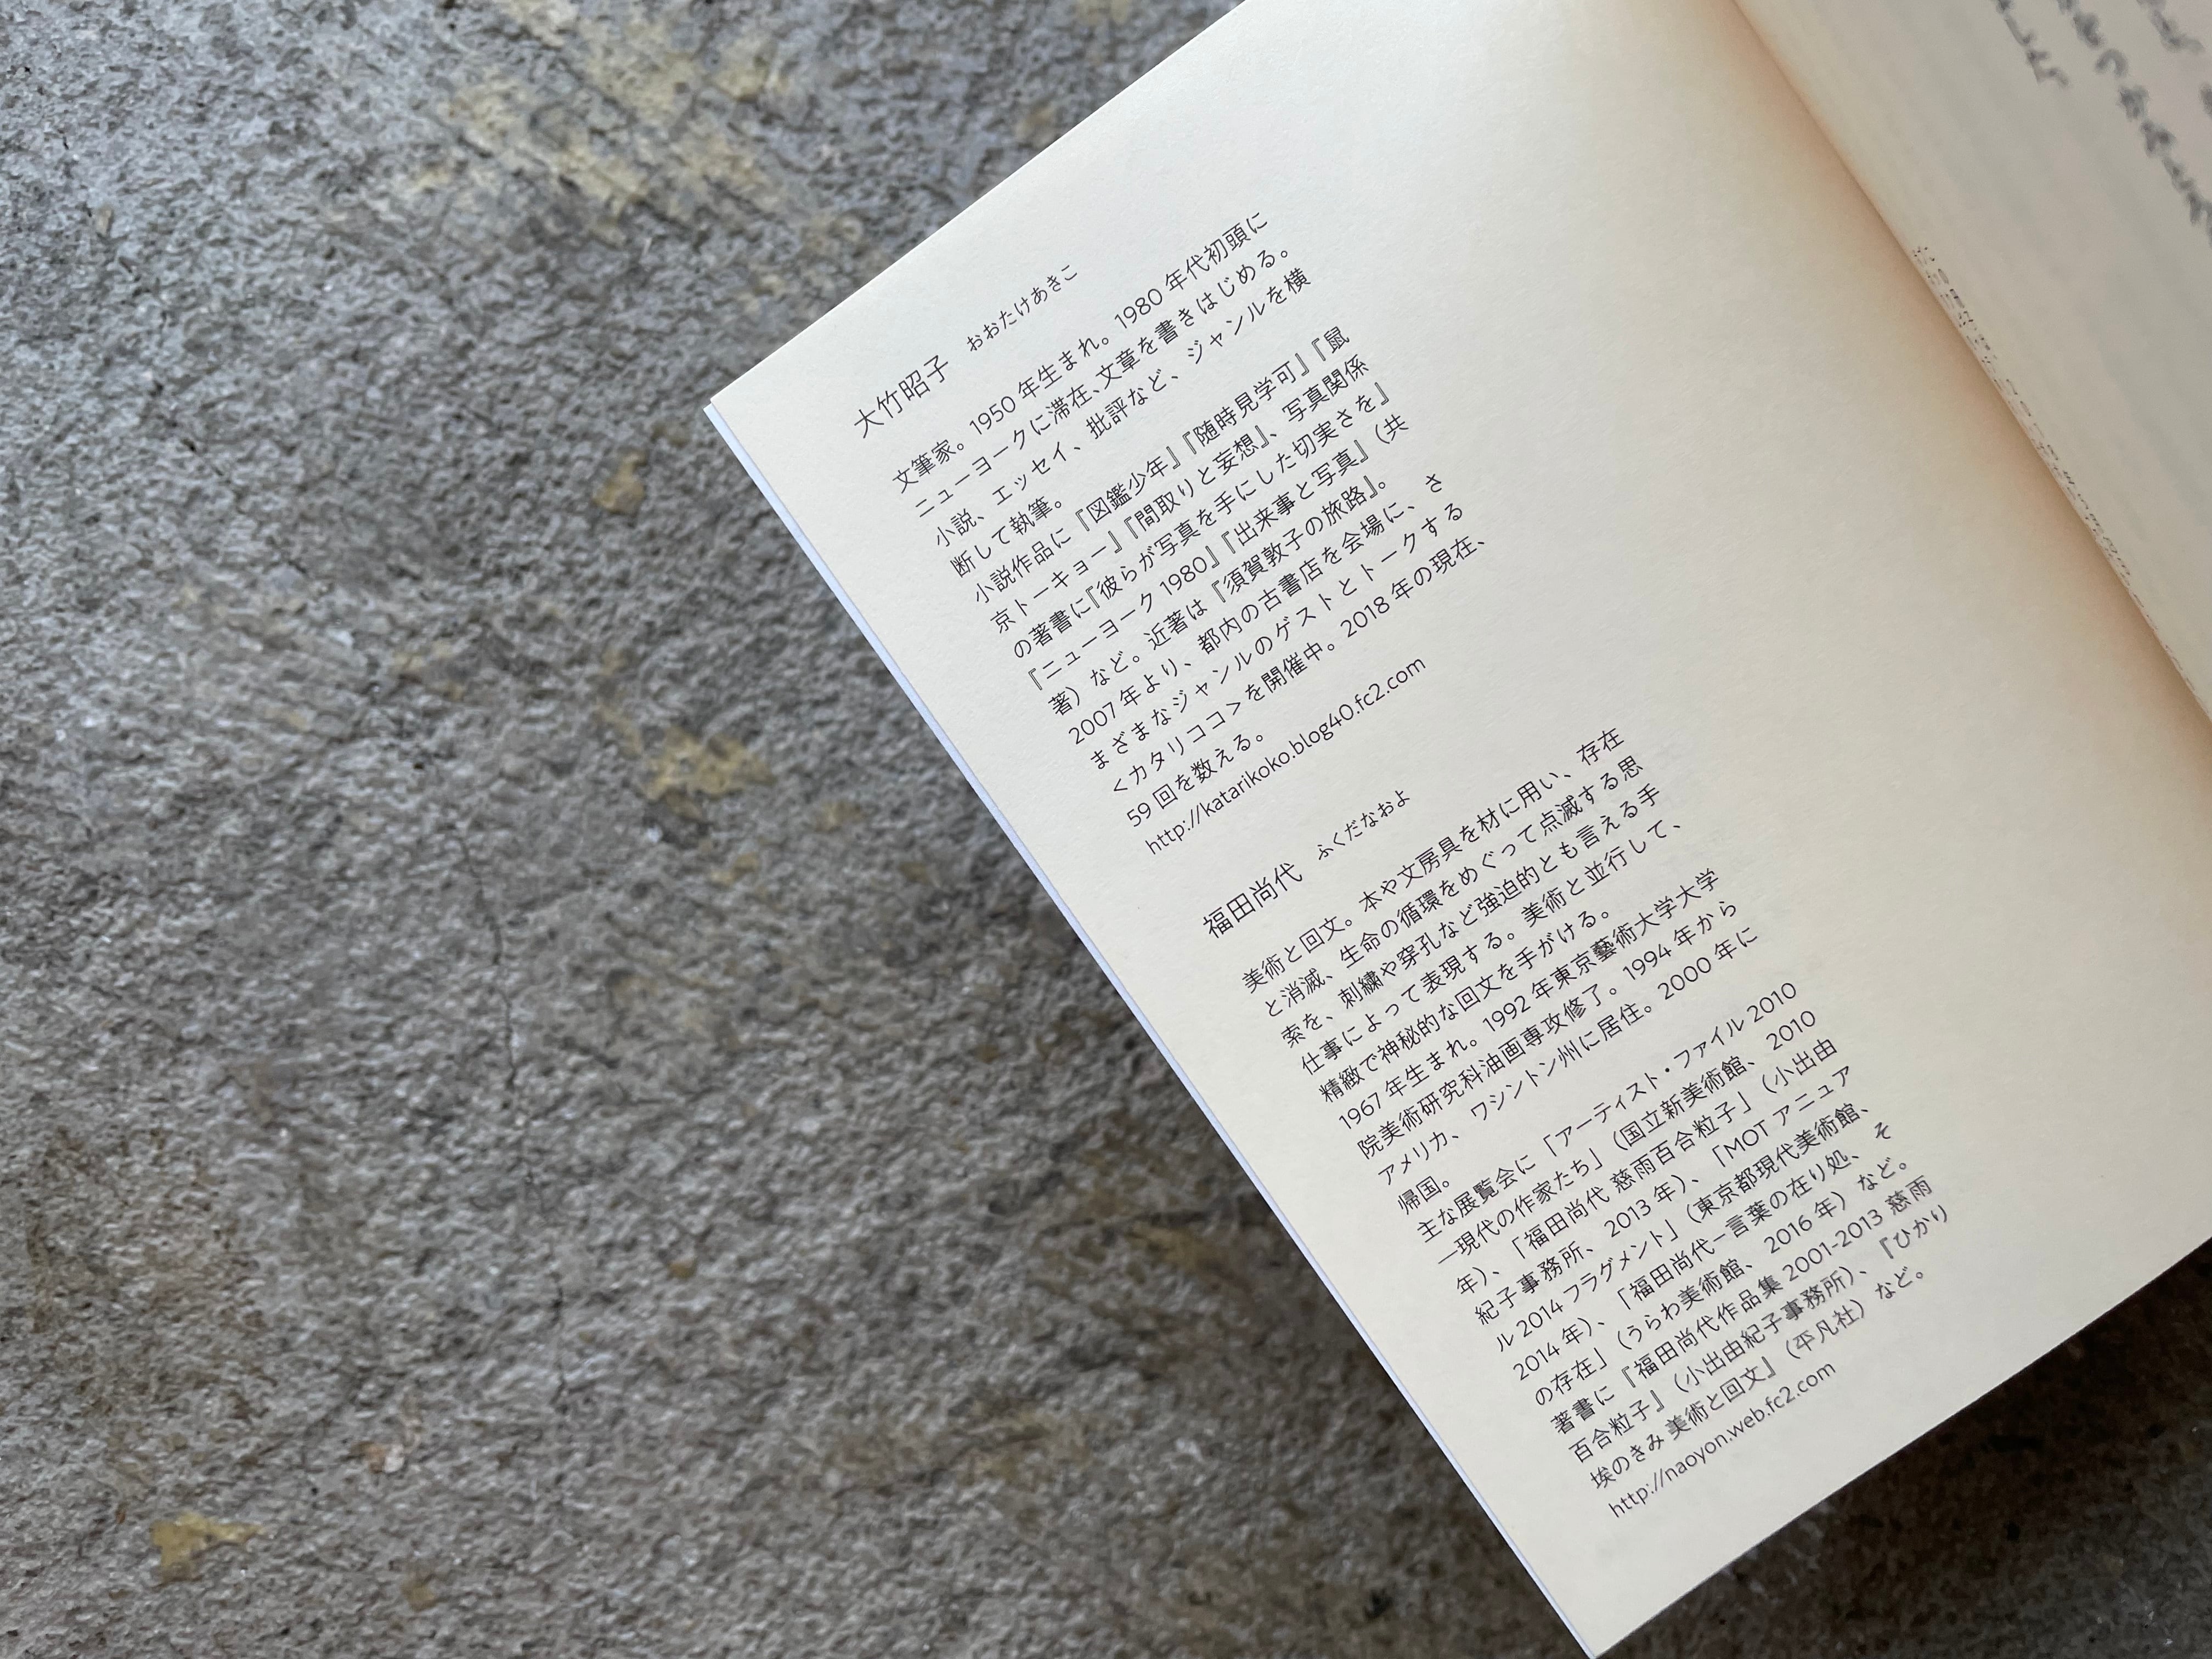 大竹昭子　おおたけあきこ
文筆家。1950 年生まれ。1980 年代初頭に
ニューヨークに滞在、文章を書きはじめる。
小説、エッセイ、批評など、ジャンルを横
断して執筆。
小説作品に『図鑑少年』『随時見学可』『鼠
京トーキョー』『間取りと妄想』、写真関係
の著書に『彼らが写真を手にした切実さを』
『ニューヨーク 1980』『出来事と写真』（共
著）など。近著は『須賀敦子の旅路』。
2007 年より、都内の古書店を会場に、さ
まざまなジャンルのゲストとトークする
＜カタリココ＞を開催中。2018 年の現在、
59 回を数える。
http://katarikoko.blog40.fc2.com
福田尚代　ふくだなおよ
美術と回文。本や文房具を材に用い、存在
と消滅、生命の循環をめぐって点滅する思
索を、刺繍や穿孔など強迫的とも言える手
仕事によって表現する。美術と並行して、
精緻で神秘的な回文を手がける。
1967 年生まれ。1992 年東京藝術大学大学
院美術研究科油画専攻修了。1994 年から
アメリカ、ワシントン州に居住。2000 年に
帰国。
主な展覧会に「アーティスト・ファイル 2010
―現代の作家たち」（国立新美術館、2010
年）、「福田尚代 慈雨百合粒子」（小出由
紀子事務所、2013 年）、「MOT アニュア
ル 2014 フラグメント」（東京都現代美術館、
2014 年）、「福田尚代－言葉の在り処、そ
の存在」（うらわ美術館、2016 年）など。
著書に『福田尚代作品集 2001-2013 慈雨
百合粒子』（小出由紀子事務所）、『ひかり
埃のきみ 美術と回文』（平凡社）など。
http://naoyon.web.fc2.com